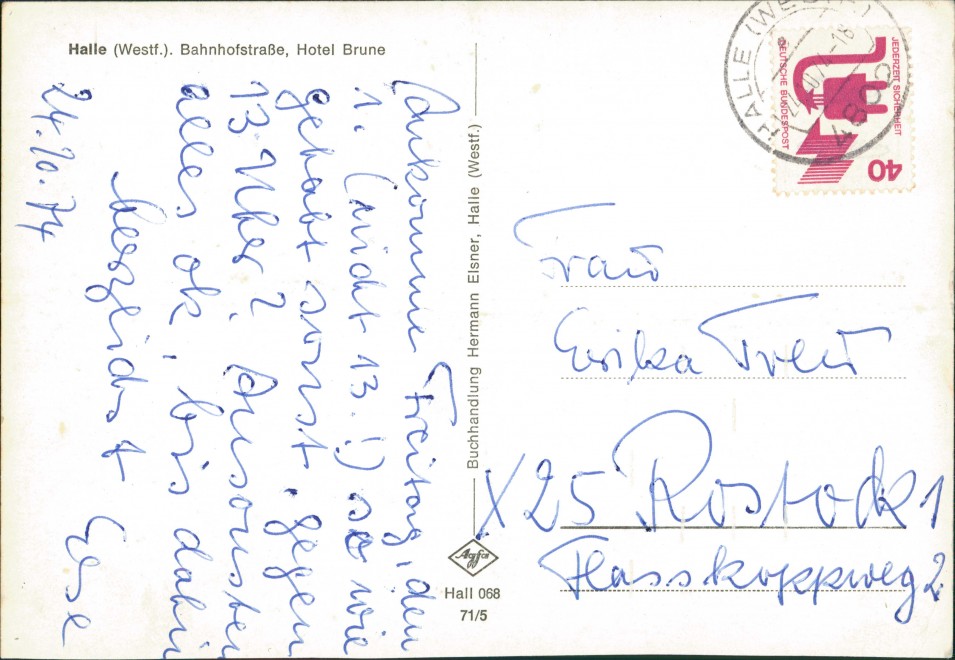 Halle (Westf.). Bahnhofstraße, Hotel Brune
24.10.74
Ankomme Freitag, den
1. (nicht 13.!) so wie
gehabt sonst, gegen
13 Uhr? Ansonsten
alles ok, bis dahin
herzlichst
Buchhandlung Hermann Elsner, Halle (Westf.)
Agfa
Hall 068
71/5
HALLE (WESTF.)
-18
4802
DEUTSCHE BUNDESPOST
JEDERZEIT SICHERHEIT
40
Frau
Erika
X25 Rostock 1
2